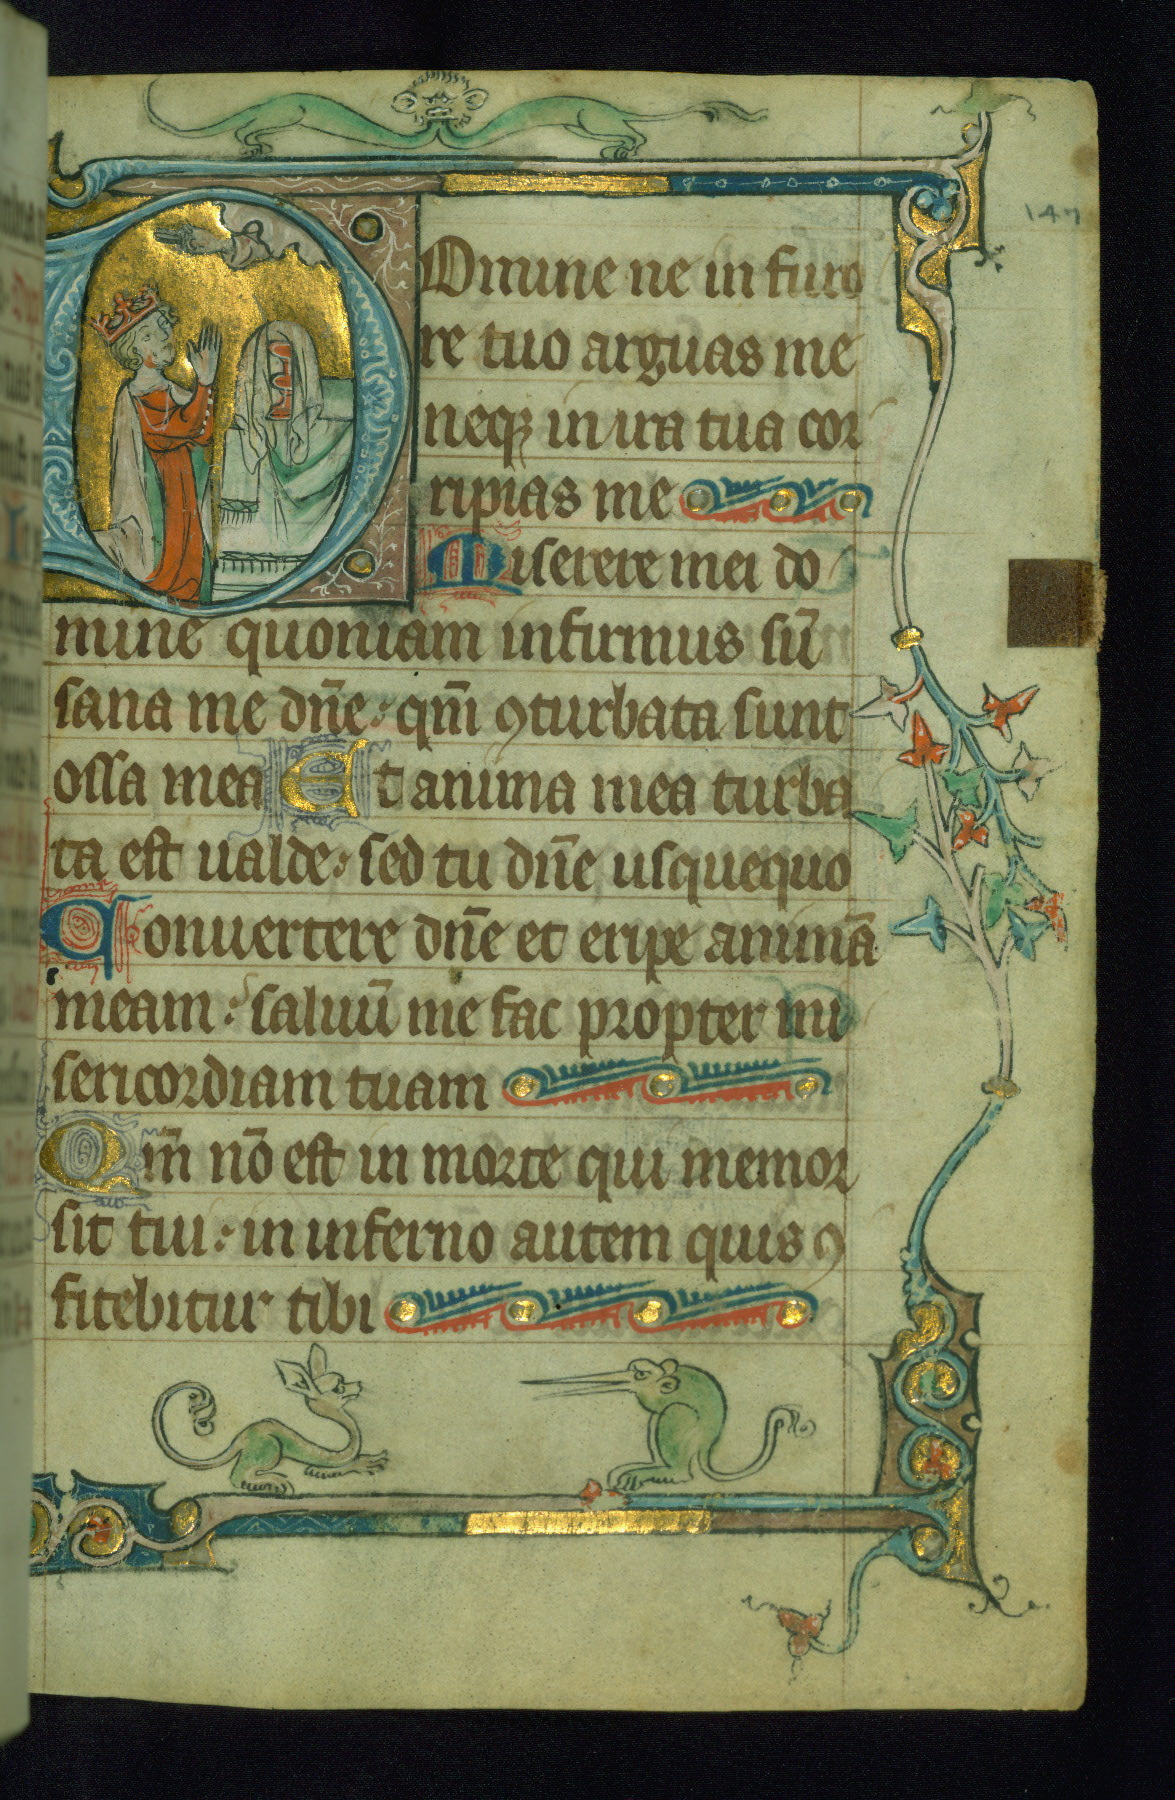 147
Domine ne in furo
re tuo arguas me
neqꝫ in ira tua cor
ripias me
Miserere mei do
mine quoniam infirmus sū
sana me dn̄e: qm̄ ꝯturbata sunt
ossa mea Et anima mea turba
ta est ualde: sed tu dn̄e usquequo
Conuertere dn̄e et eripe animā
meam: saluū me fac propter mi
sericordiam tuam
Qm̄ nō est in morte qui memor
sit tui: in inferno autem quis ꝯ
fitebitur tibi